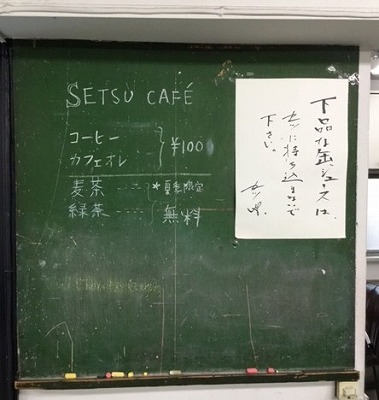 SETSU CAFÉ
コーヒー
カフェオレ
¥100
麦茶 ---- *夏季限定
緑茶 ----
無料
下品な缶ジュースは、
セツに持ち込まないで
下さい。
セツ